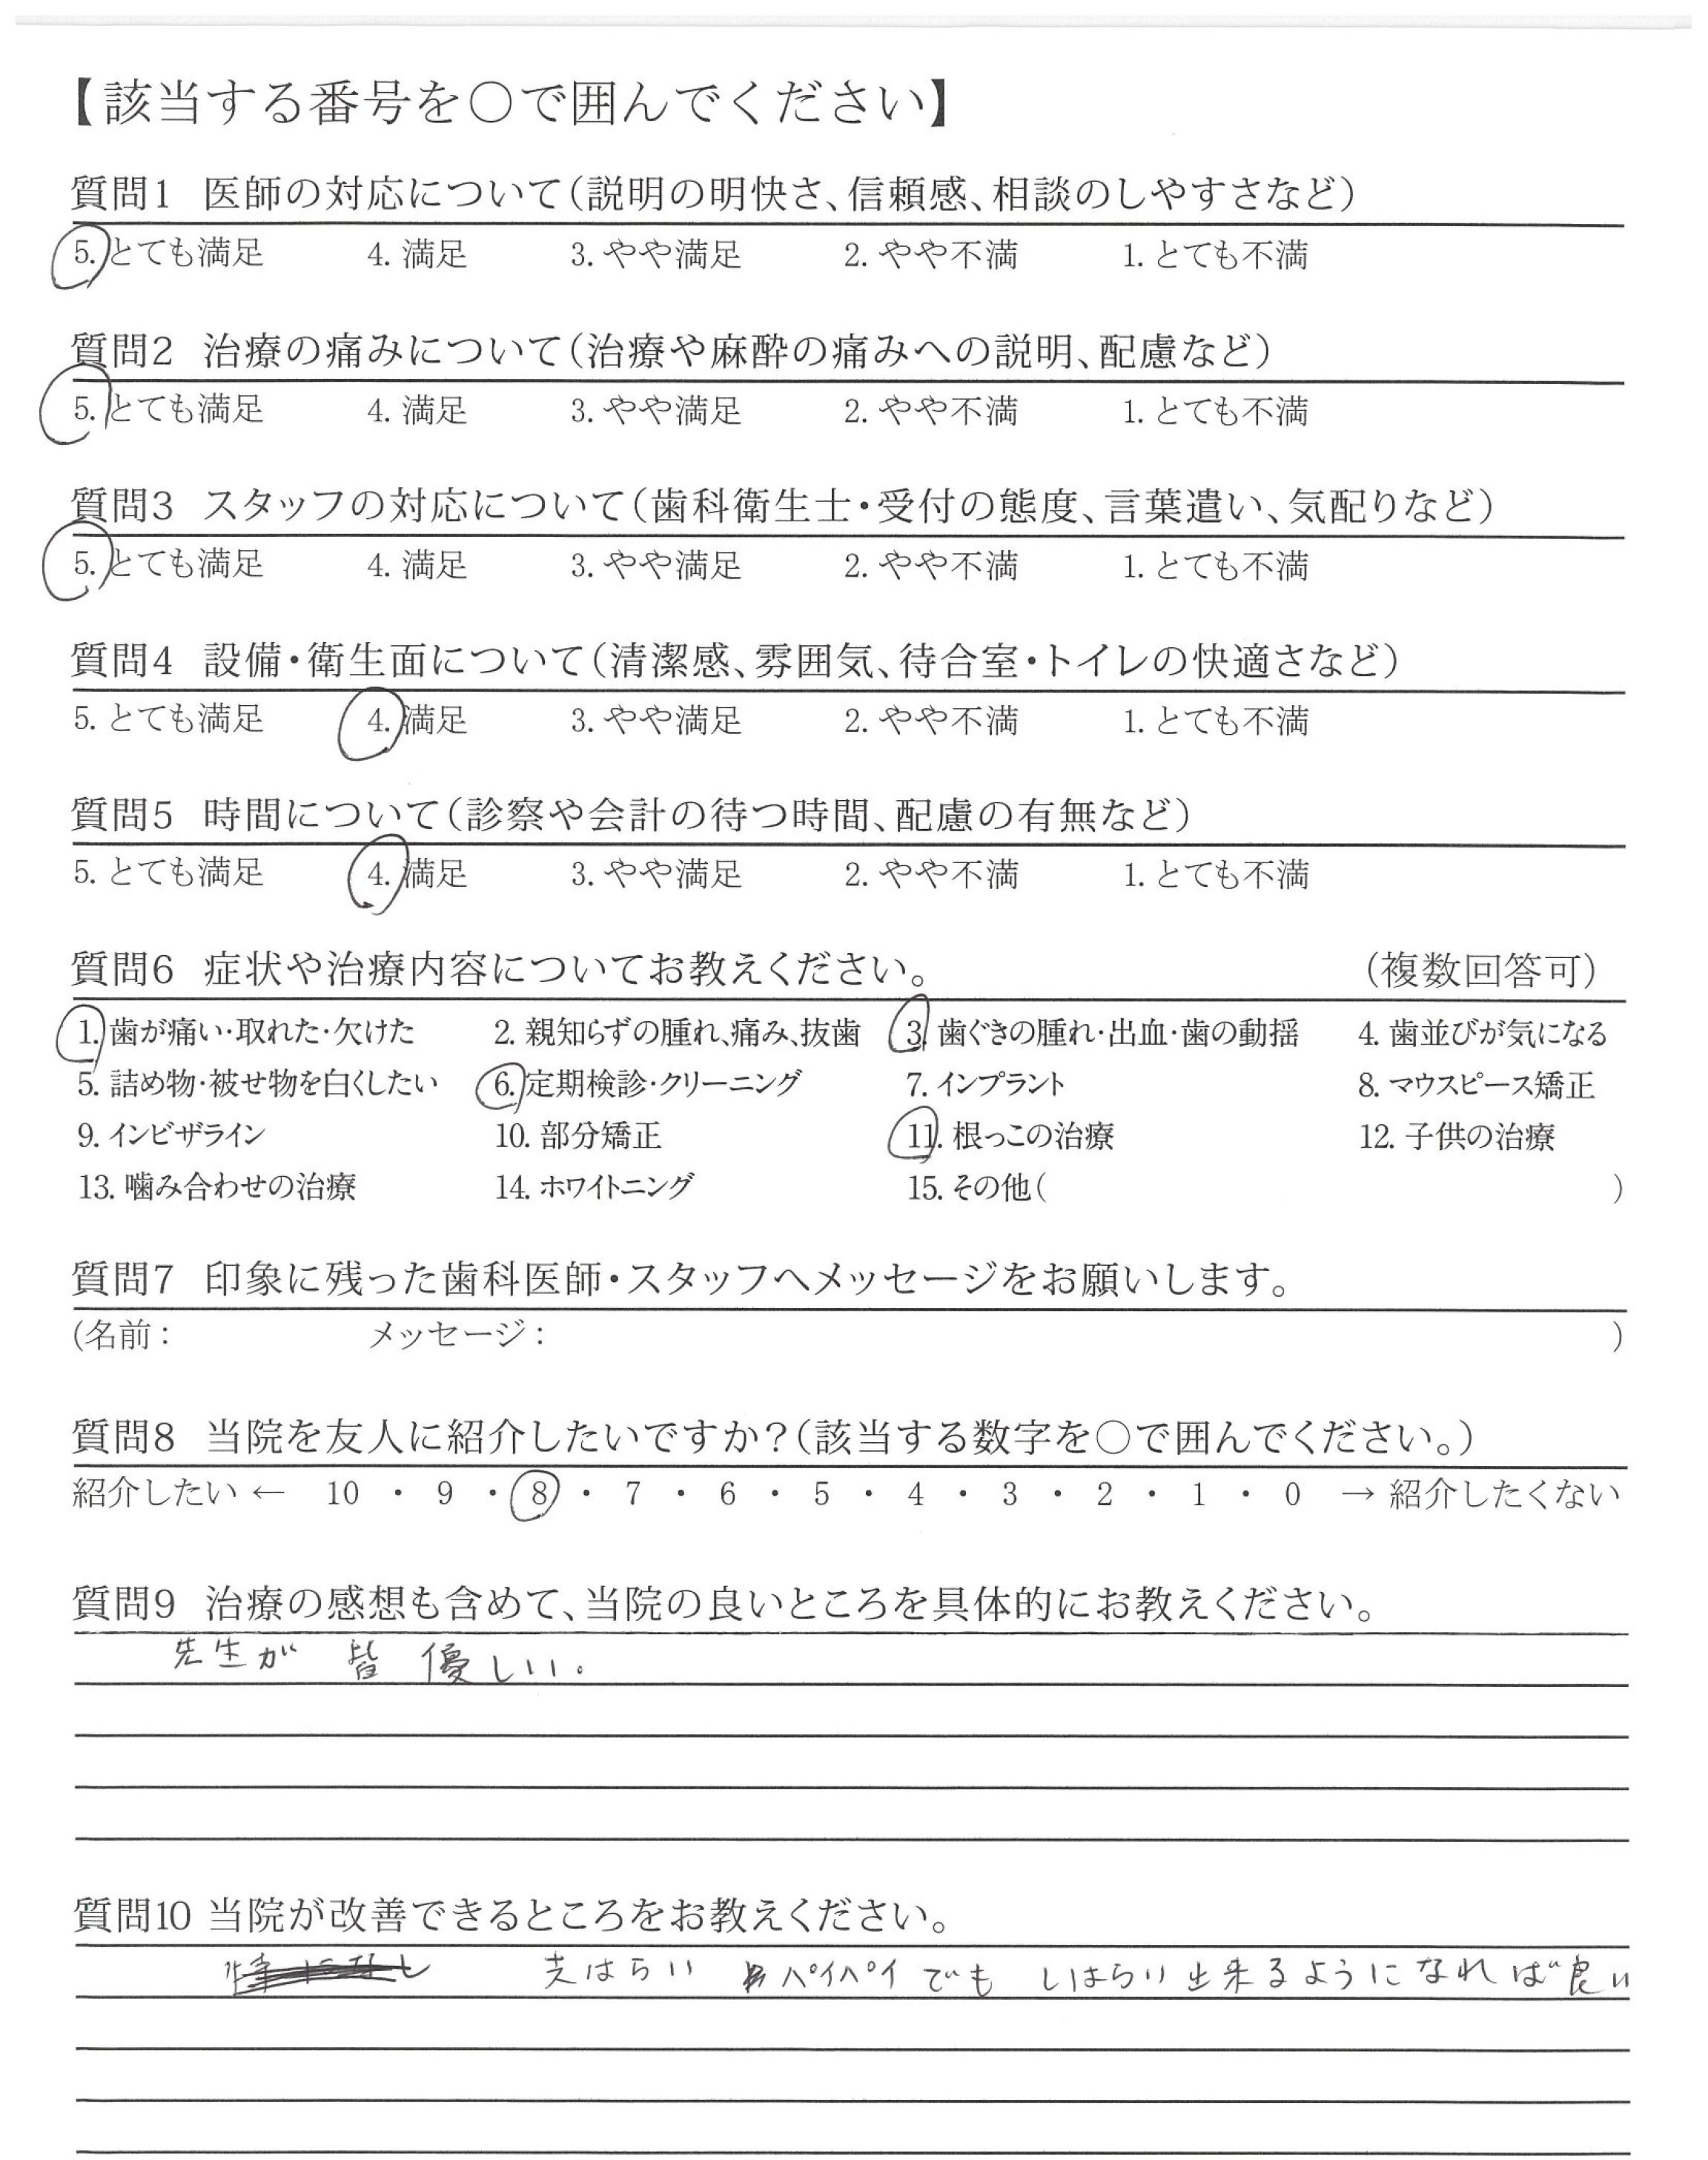 【該当する番号を○で囲んでください】
質問1 医師の対応について(説明の明快さ、信頼感、相談のしやすさなど)
5. とても満足 4. 満足 3. やや満足 2. やや不満 1. とても不満
質問2 治療の痛みについて(治療や麻酔の痛みへの説明、配慮など)
5. とても満足 4. 満足 3. やや満足 2. やや不満 1. とても不満
質問3 スタッフの対応について(歯科衛生士・受付の態度、言葉遣い、気配りなど)
5. とても満足 4. 満足 3. やや満足 2. やや不満 1. とても不満
質問4 設備・衛生面について(清潔感、雰囲気、待合室・トイレの快適さなど)
5. とても満足 4. 満足 3. やや満足 2. やや不満 1. とても不満
質問5 時間について(診察や会計の待つ時間、配慮の有無など)
5. とても満足 4. 満足 3. やや満足 2. やや不満 1. とても不満
質問6 症状や治療内容についてお教えください。 (複数回答可)
1. 歯が痛い・取れた・欠けた 2. 親知らずの腫れ、痛み、抜歯 3. 歯ぐきの腫れ・出血・歯の動揺 4. 歯並びが気になる
5. 詰め物・被せ物を白くしたい 6. 定期検診・クリーニング 7. インプラント 8. マウスピース矯正
9. インビザライン 10. 部分矯正 11. 根っこの治療 12. 子供の治療
13. 噛み合わせの治療 14. ホワイトニング 15. その他( )
質問7 印象に残った歯科医師・スタッフへメッセージをお願いします。
(名前: メッセージ: )
質問8 当院を友人に紹介したいですか?(該当する数字を○で囲んでください。)
紹介したい ← 10 ・ 9 ・ 8 ・ 7 ・ 6 ・ 5 ・ 4 ・ 3 ・ 2 ・ 1 ・ 0 → 紹介したくない
質問9 治療の感想も含めて、当院の良いところを具体的にお教えください。
先生が 皆 優しい。
質問10 当院が改善できるところをお教えください。
支はらい ペイペイでも しはらい出来るようになれば良い